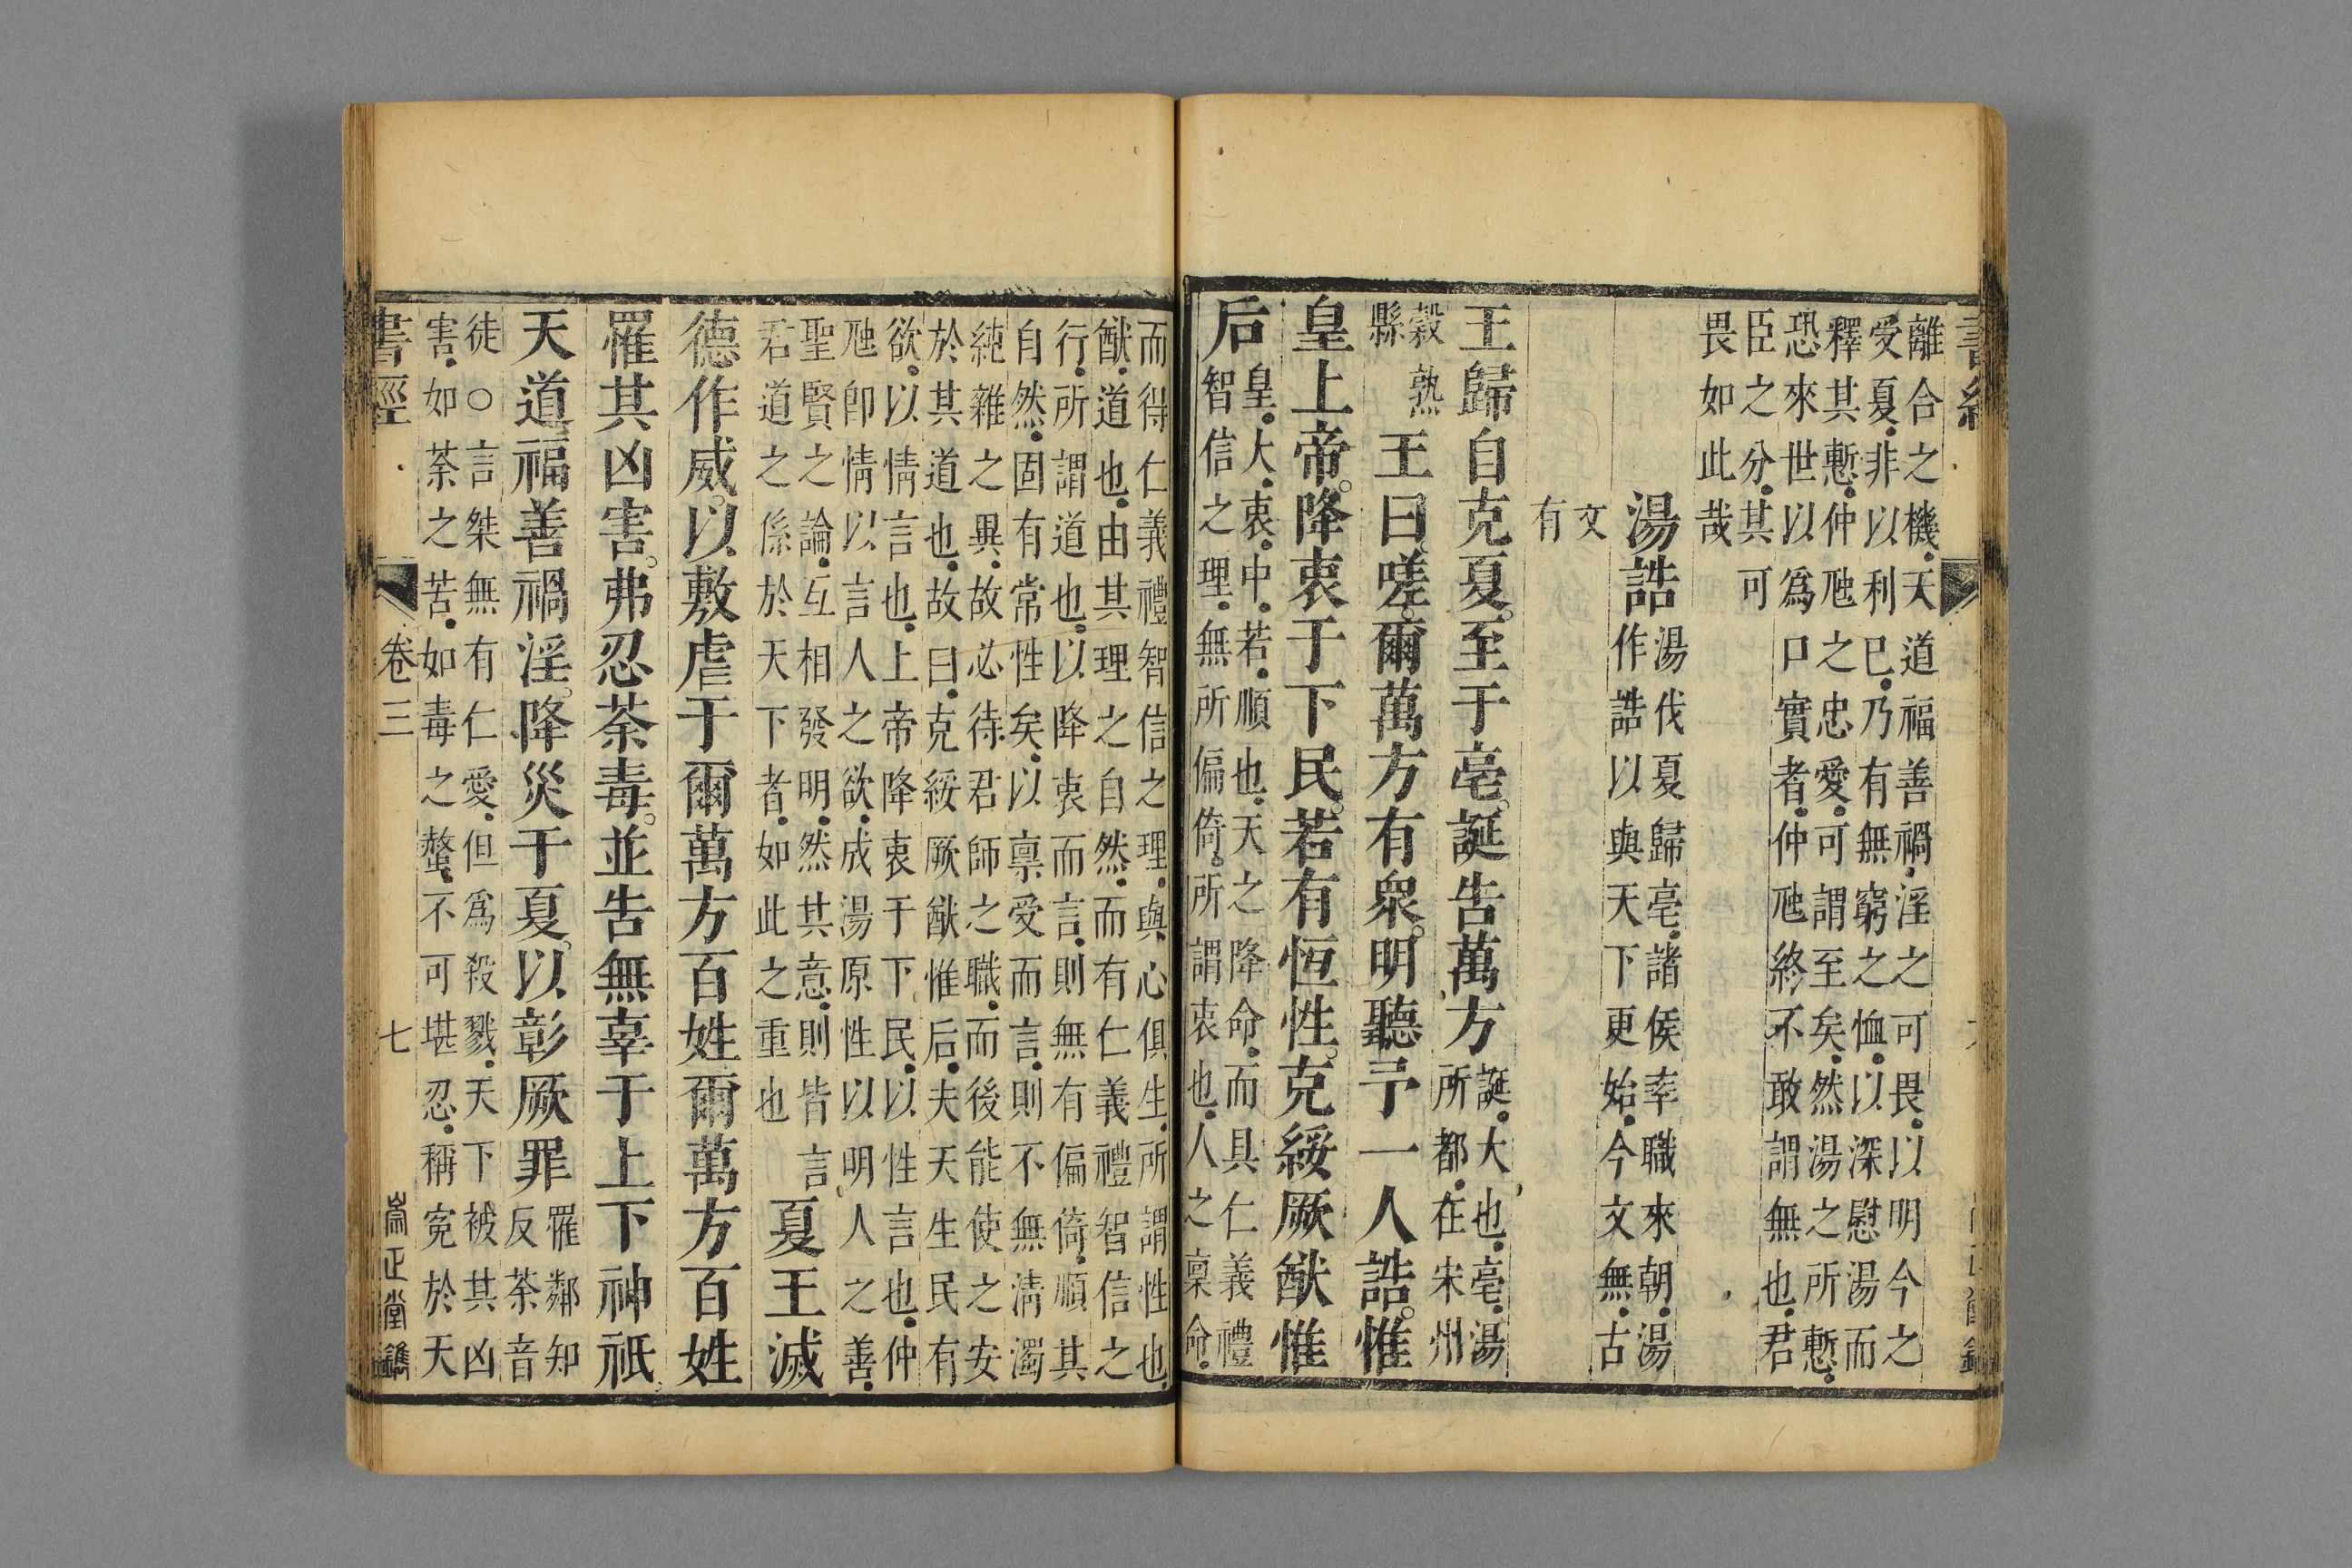 離合之機天道福善禍淫之可畏以明今之
受夏非以利已乃有無窮之恤以深慰湯而
釋其慙仲虺之忠愛可謂至矣然湯之所慙
恐來世以爲口實者仲虺終不敢謂無也君
臣之分其可
畏如此哉
湯誥 湯伐夏歸亳諸侯率職來朝湯
作誥以與天下更始今文無古
文
有
王歸自克夏至于亳誕告萬方 誕大也亳湯
所都在宋州
穀熟
縣 王曰嗟爾萬方有衆明聽予一人誥惟
皇上帝降衷于下民若有恒性克綏厥猷惟
后 皇大衷中若順也天之降命而具仁義禮
智信之理無所偏倚所謂衷也人之稟命
而得仁義禮智信之理與心俱生所謂性也
猷道也由其理之自然而有仁義禮智信之
行所謂道也以降衷而言則無有偏倚順其
自然固有常性矣以稟受而言則不無淸濁
純雜之異故必待君師之職而後能使之安
於其道也故曰克綏厥猷惟后夫天生民有
欲以情言也上帝降衷于下民以性言也仲
虺卽情以言人之欲成湯原性以明人之善
聖賢之論互相發明然其意則皆言
君道之係於天下者如此之重也 夏王滅
德作威以敷虐于爾萬方百姓爾萬方百姓
罹其凶害弗忍荼毒並告無辜于上下神祇
天道福善禍淫降災于夏以彰厥罪 罹鄰知
反荼音
徒○言桀無有仁愛但爲殺戮天下被其凶
害如荼之苦如毒之螫不可堪忍稱寃於天
書經 卷三 七 崇正堂鐫